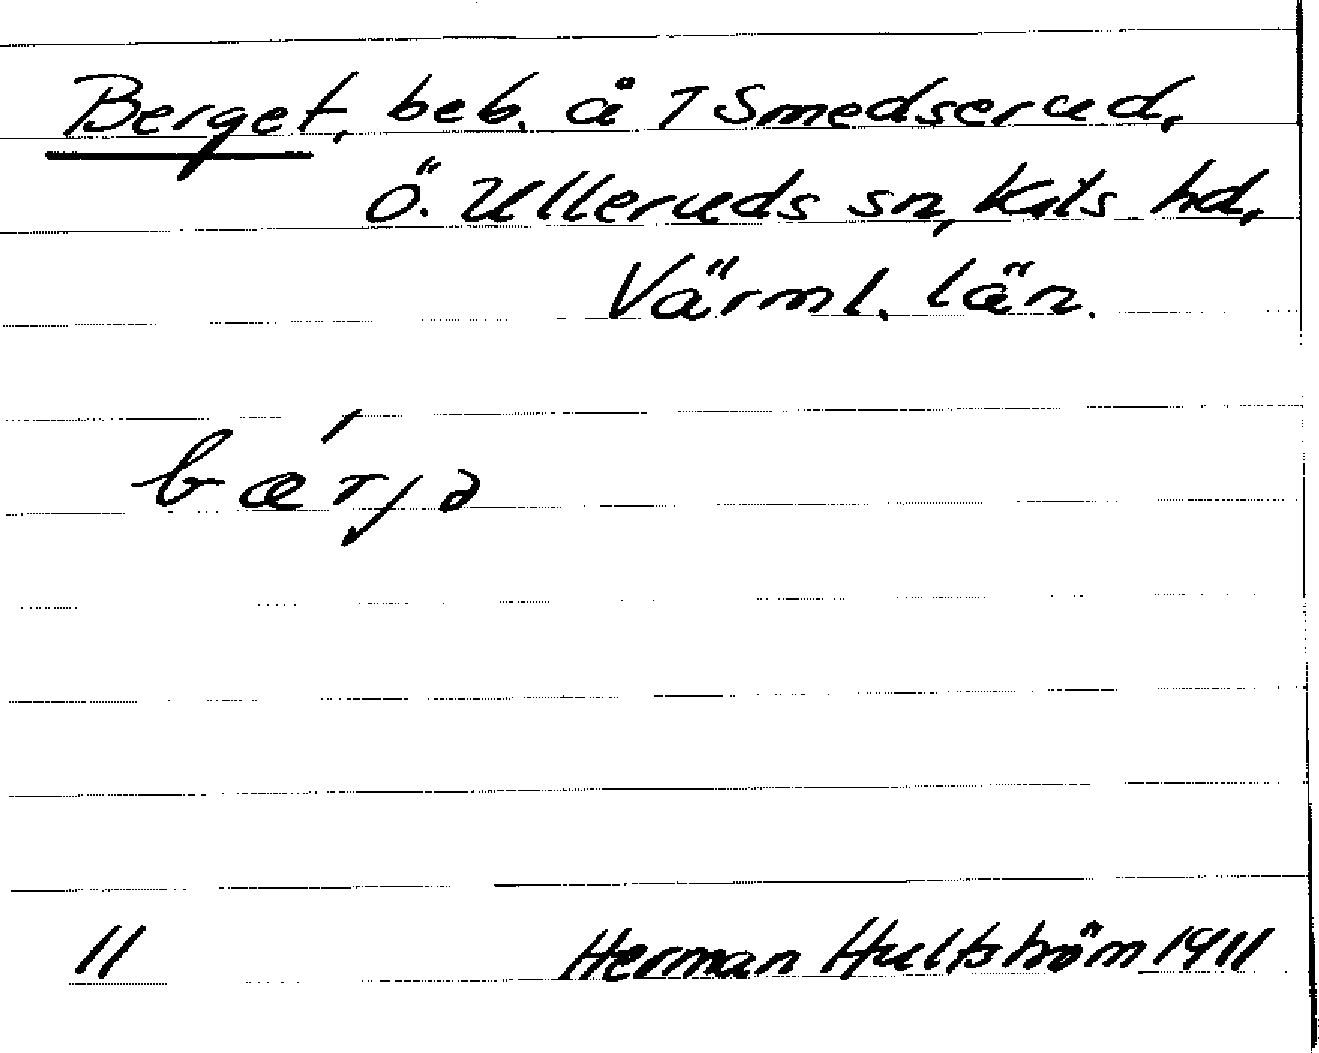 Berget, beb. å 1 Smedserud,
Ö. Ulleruds sn, Kils hd,
Värml. län.
bæŕjə
11 Herman Hultström 1911